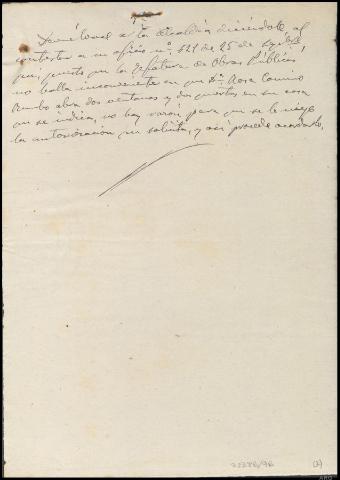 a la Alcaldía diciéndole al
contestar a su oficio nº 521 de 25 de
que, puesto que la Jefatura de Obras Públicas
no halla inconveniente en que Dª Rosa Camino
abra dos ventanas y dos puertas en su casa
que se indica, no hay razón para que se le niegue
la autorización que solicita, y así procede acordarlo.
(2)